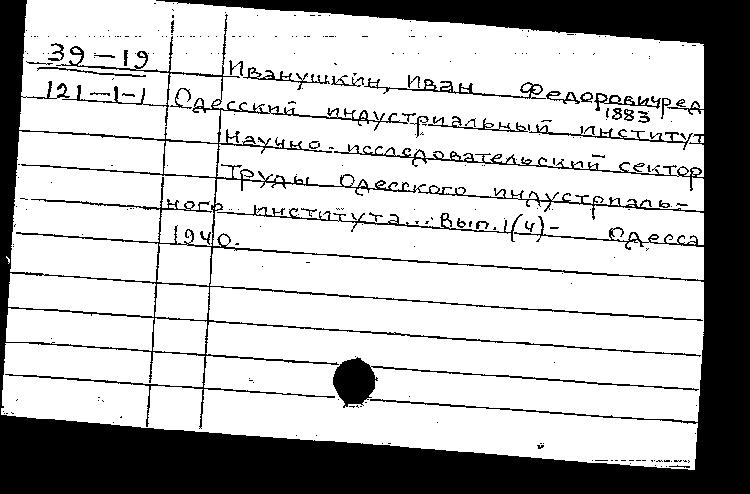 39-19
121-1-1
Иванушкин, Иван Федорович, ред
1883
Одесский индустриальный институт
Научно-исследовательский сектор
Труды Одесского индустриаль-
ного института... Вып. 1(4)- Одесса
1940.